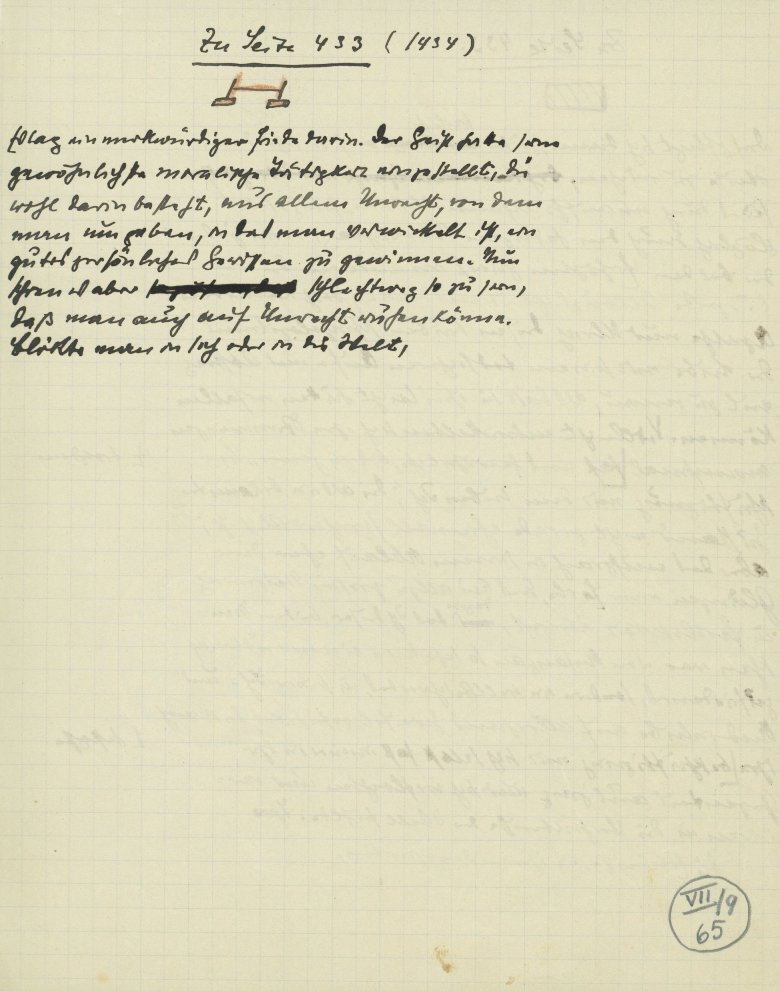 Zu Seite 433 (1434)
Es lag ein merkwürdiger Friede darin. Der Geist hatte seine
gewöhnlichste moralische Tätigkeit eingestellt, die
wohl darin besteht, aus allem Unrecht, von dem
man umgeben, in das man verwickelt ist, ein
gutes persönliches Gewissen zu gewinnen. Nun
schien es aber schlechtweg so zu sein,
daß man auch auf Unrecht ruhen könne.
Blickte man in sich oder in die Welt,
VII/9
65